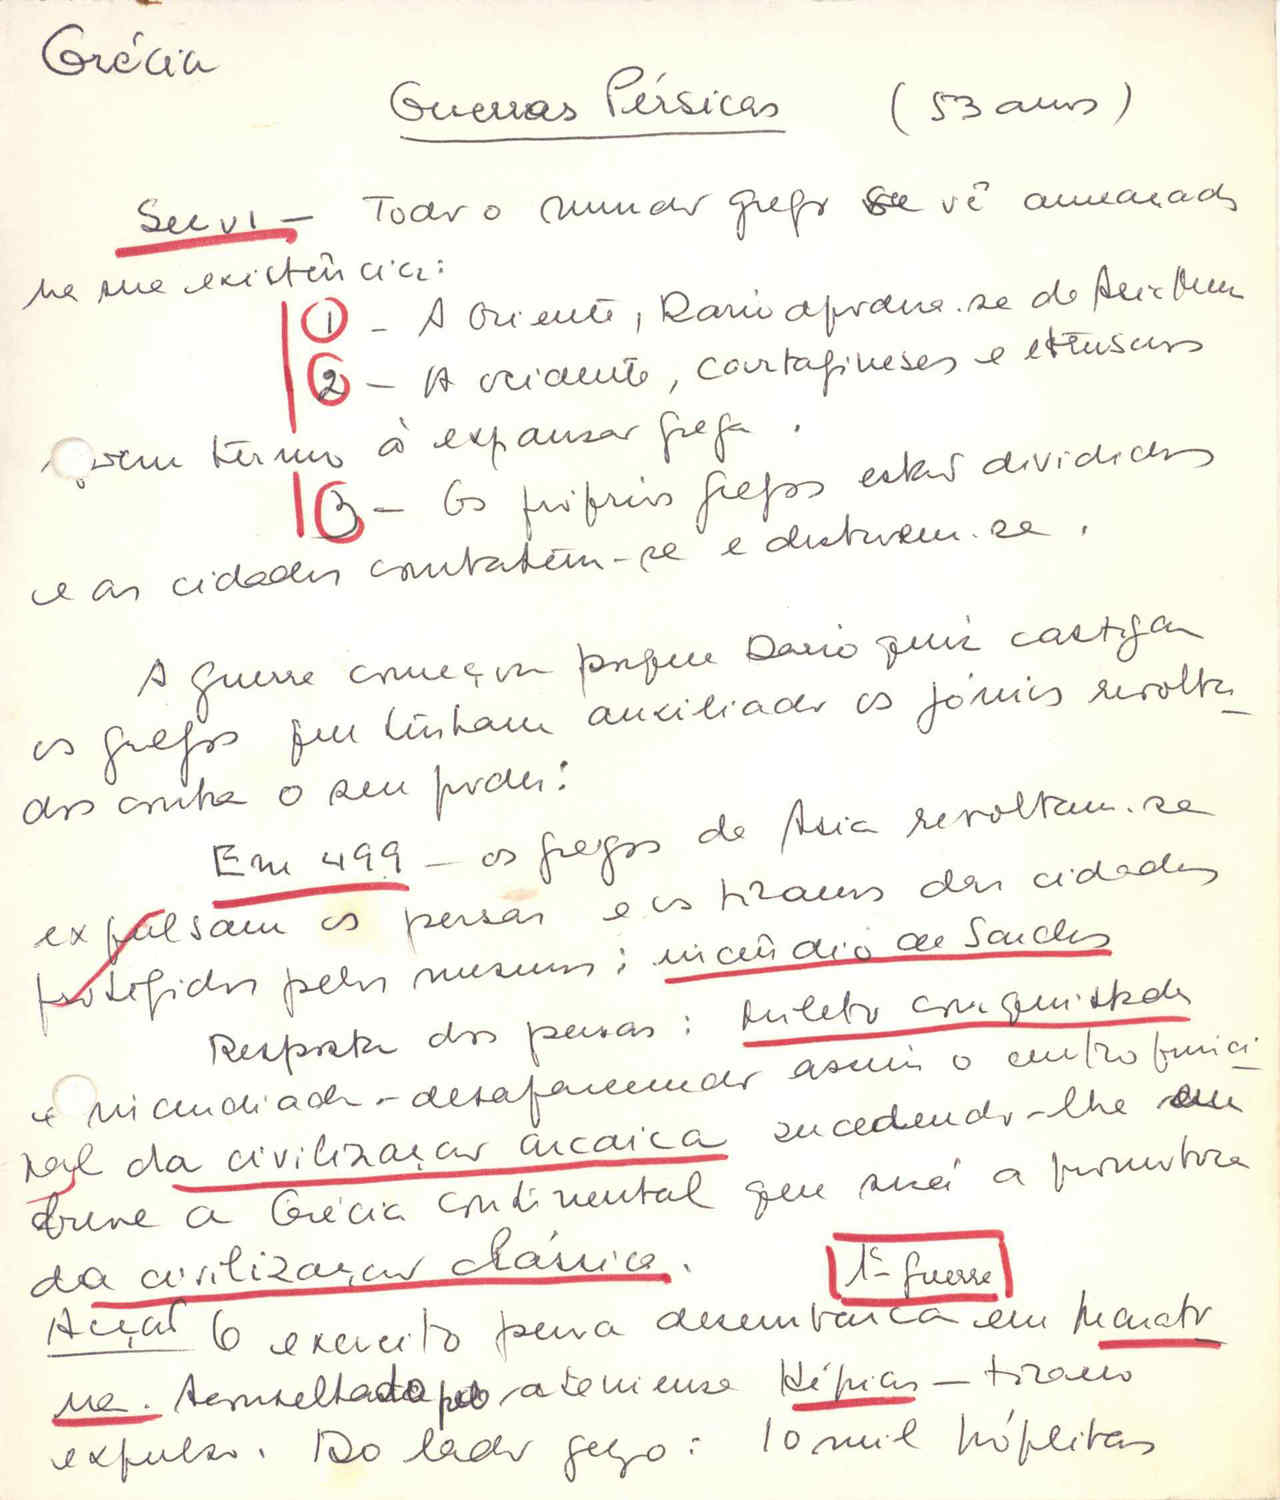 Grécia
Guerras Pérsicas (53 anos)
Sec VI - Todo o mundo grego se vê ameaçado
na sua existência:
1 - A Oriente, Dario apodera-se da Asia Men
2 - A ocidente, cartagineses e etruscos
poem termo à expansão grega.
3 - Os próprios gregos estão divididos
e as cidades combatem-se e destroem-se.
A guerra começou porque Dario quiz castigar
os gregos que tinham auxiliado os jónios revolta_
dos contra o seu poder:
Em 499 - os gregos da Asia revoltam-se
expulsam os persas e os tiranos das cidades
protegidos pelos mesmos; incêndio de Sardes
Resposta dos persas: Mileto conquistada
e incendiada - desaparecendo assim o centro princi_
pal da civilização arcaica sucedendo-lhe em
breve a Grécia continental que será a promotora
da civilização clássica.
1ª guerra
Acção O exercito persa desembarca em Marato
na. Aconselhado pelo ateniense Hípias - tirano
expulso. Do lado grego: 10 mil hóplitas